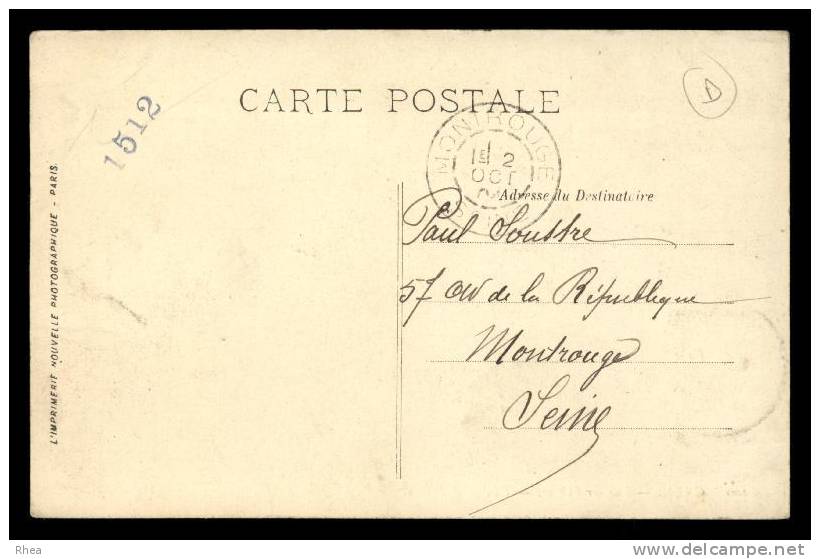 CARTE POSTALE
1512
D
MONTROUGE
1E 2
OCT
Adresse du Destinataire
Paul Soustre
57 av de la République
Montrouge
Seine
L'IMPRIMERIE NOUVELLE PHOTOGRAPHIQUE - PARIS.
Rhea
www.delcampe.net